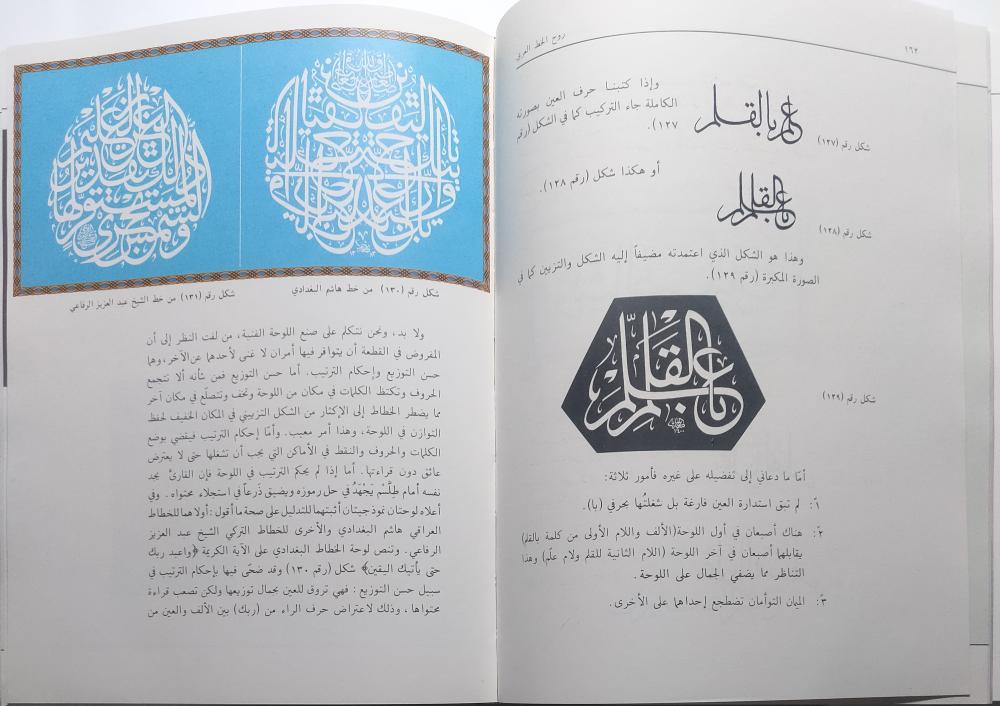 ١٦٢
روح الخط العربي
وإذا كتبنا حرف العين بصورته
الكاملة جاء التركيب كما في الشكل (رقم
١٢٧).
علم بالقلم
شكل رقم (١٢٧)
أو هكذا شكل (رقم ١٢٨).
علم بالقلم
شكل رقم (١٢٨)
وهذا هو الشكل الذي اعتمدته مضيفاً إليه الشكل والتزيين كما في
الصورة المكبرة (رقم ١٢٩).
علم بالقلم
شكل رقم (١٢٩)
أمّا ما دعاني إلى تفضيله على غيره فأمور ثلاثة:
١: لم تبق استدارة العين فارغة بل شغلتُها بحرفي (با).
٢: هناك أصبعان في أول اللوحة (الألف واللام الأولى من كلمة بالقلم)
يقابلها أصبعان في آخر اللوحة (اللام الثانية للقلم ولام علّم) وهذا
التناظر مما يضفي الجمال على اللوحة.
٣: الميان التوأمان تضطجع إحداهما على الأخرى.
شكل رقم (١٣٠) من خط هاشم البغدادي
شكل رقم (١٣١) من خط الشيخ عبد العزيز الرفاعي
ولا بد، ونحن نتكلم على صنع اللوحة الفنية، من لفت النظر إلى أن
المفروض في القطعة أن يتوافر فيها أمران لا غنى لأحدهما عن الآخر، وهما
حسن التوزيع وإحكام الترتيب. أما حسن التوزيع فمن شأنه ألا تتجمع
الحروف وتكتظ الكلمات في مكان من اللوحة وتخف وتتصلّع في مكان آخر
مما يضطر الخطاط إلى الإكثار من الشكل التزييني في المكان الخفيف لحفظ
التوازن في اللوحة، وهذا أمر معيب. وأمّا إحكام الترتيب فيقضي بوضع
الكلمات والحروف والنقط في الأماكن التي يجب أن تشغلها حتى لا يعترض
عائق دون قراءتها. أما إذا لم يحكم الترتيب في اللوحة فإن القارئ يجد
نفسه أمام طِلَّسْم يَجْهَدُ في حل رموزه ويضيق ذَرعاً في استجلاء محتواه. وفي
أعلاه لوحتان نموذجيتان أثبتهما للتدليل على صحة ما أقول: أولاهما للخطاط
العراقي هاشم البغدادي والأخرى للخطاط التركي الشيخ عبد العزيز
الرفاعي. وتنص لوحة الخطاط البغدادي على الآية الكريمة ﴿واعبد ربك
حتى يأتيك اليقين﴾ شكل (رقم ١٣٠) وقد ضحّى فيها بإحكام الترتيب في
سبيل حسن التوزيع: فهي تروق للعين بجمال توزيعها ولكن تصعب قراءة
محتواها، وذلك لاعتراض حرف الراء من (ربك) بين الألف والعين من